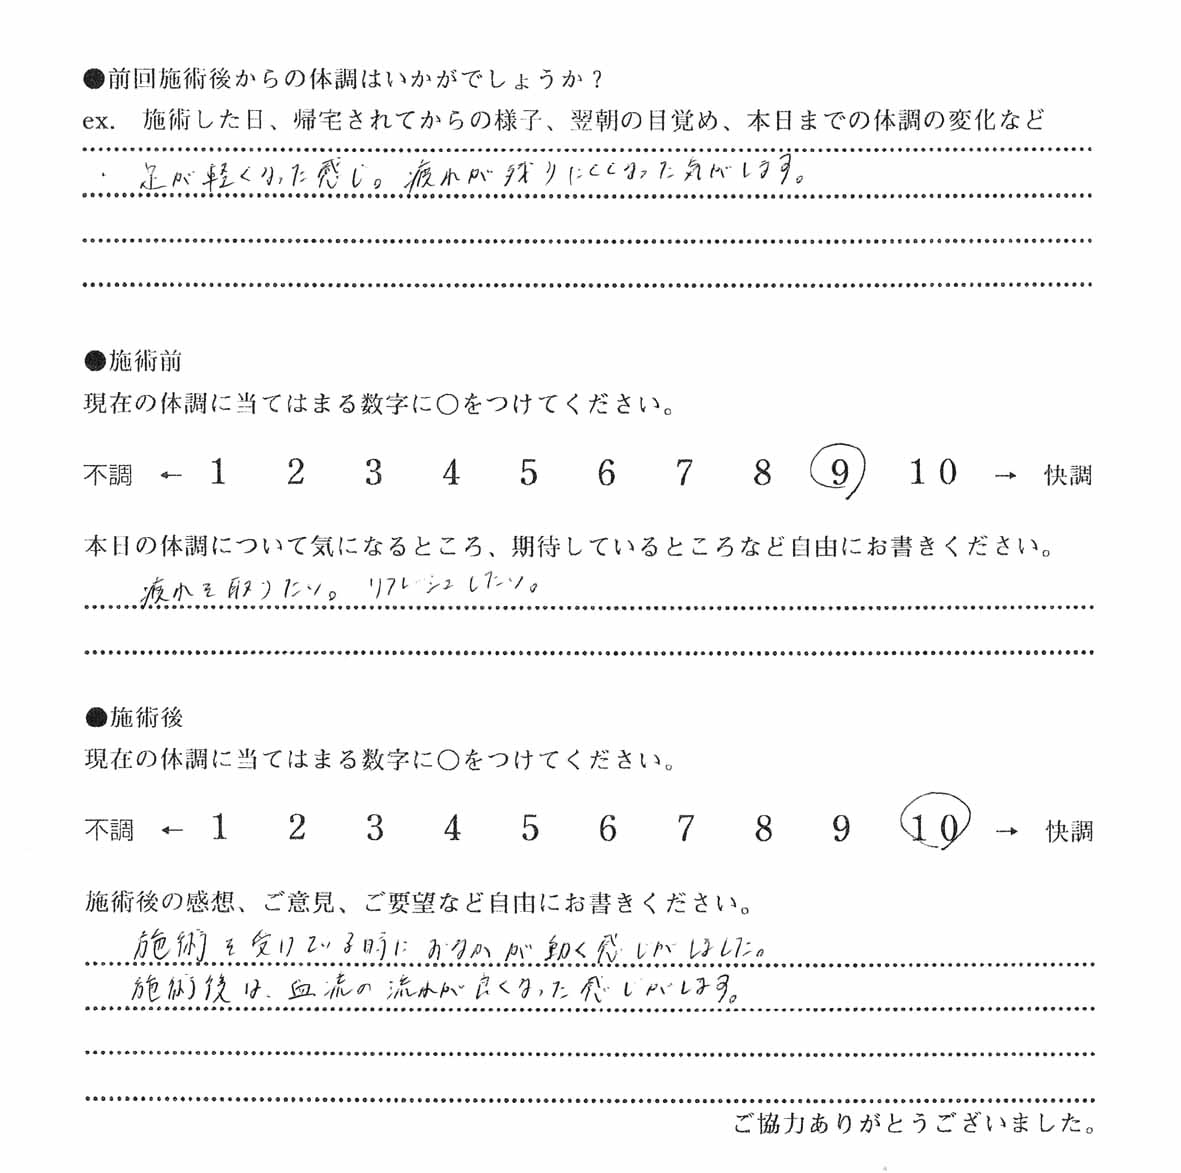 ●前回施術後からの体調はいかがでしょうか？
ex. 施術した日、帰宅されてからの様子、翌朝の目覚め、本日までの体調の変化など
・ 足が軽くなった感じ。疲れが残りにくくなった気がします。
●施術前
現在の体調に当てはまる数字に○をつけてください。
不調 ← 1 2 3 4 5 6 7 8 9 10 → 快調
本日の体調について気になるところ、期待しているところなど自由にお書きください。
疲れを取りたい。リフレシュしたい。
●施術後
現在の体調に当てはまる数字に○をつけてください。
不調 ← 1 2 3 4 5 6 7 8 9 10 → 快調
施術後の感想、ご意見、ご要望など自由にお書きください。
施術を受けている時におなかが動く感じがしました。
施術後は、血流の流れが良くなった感じがします。
ご協力ありがとうございました。